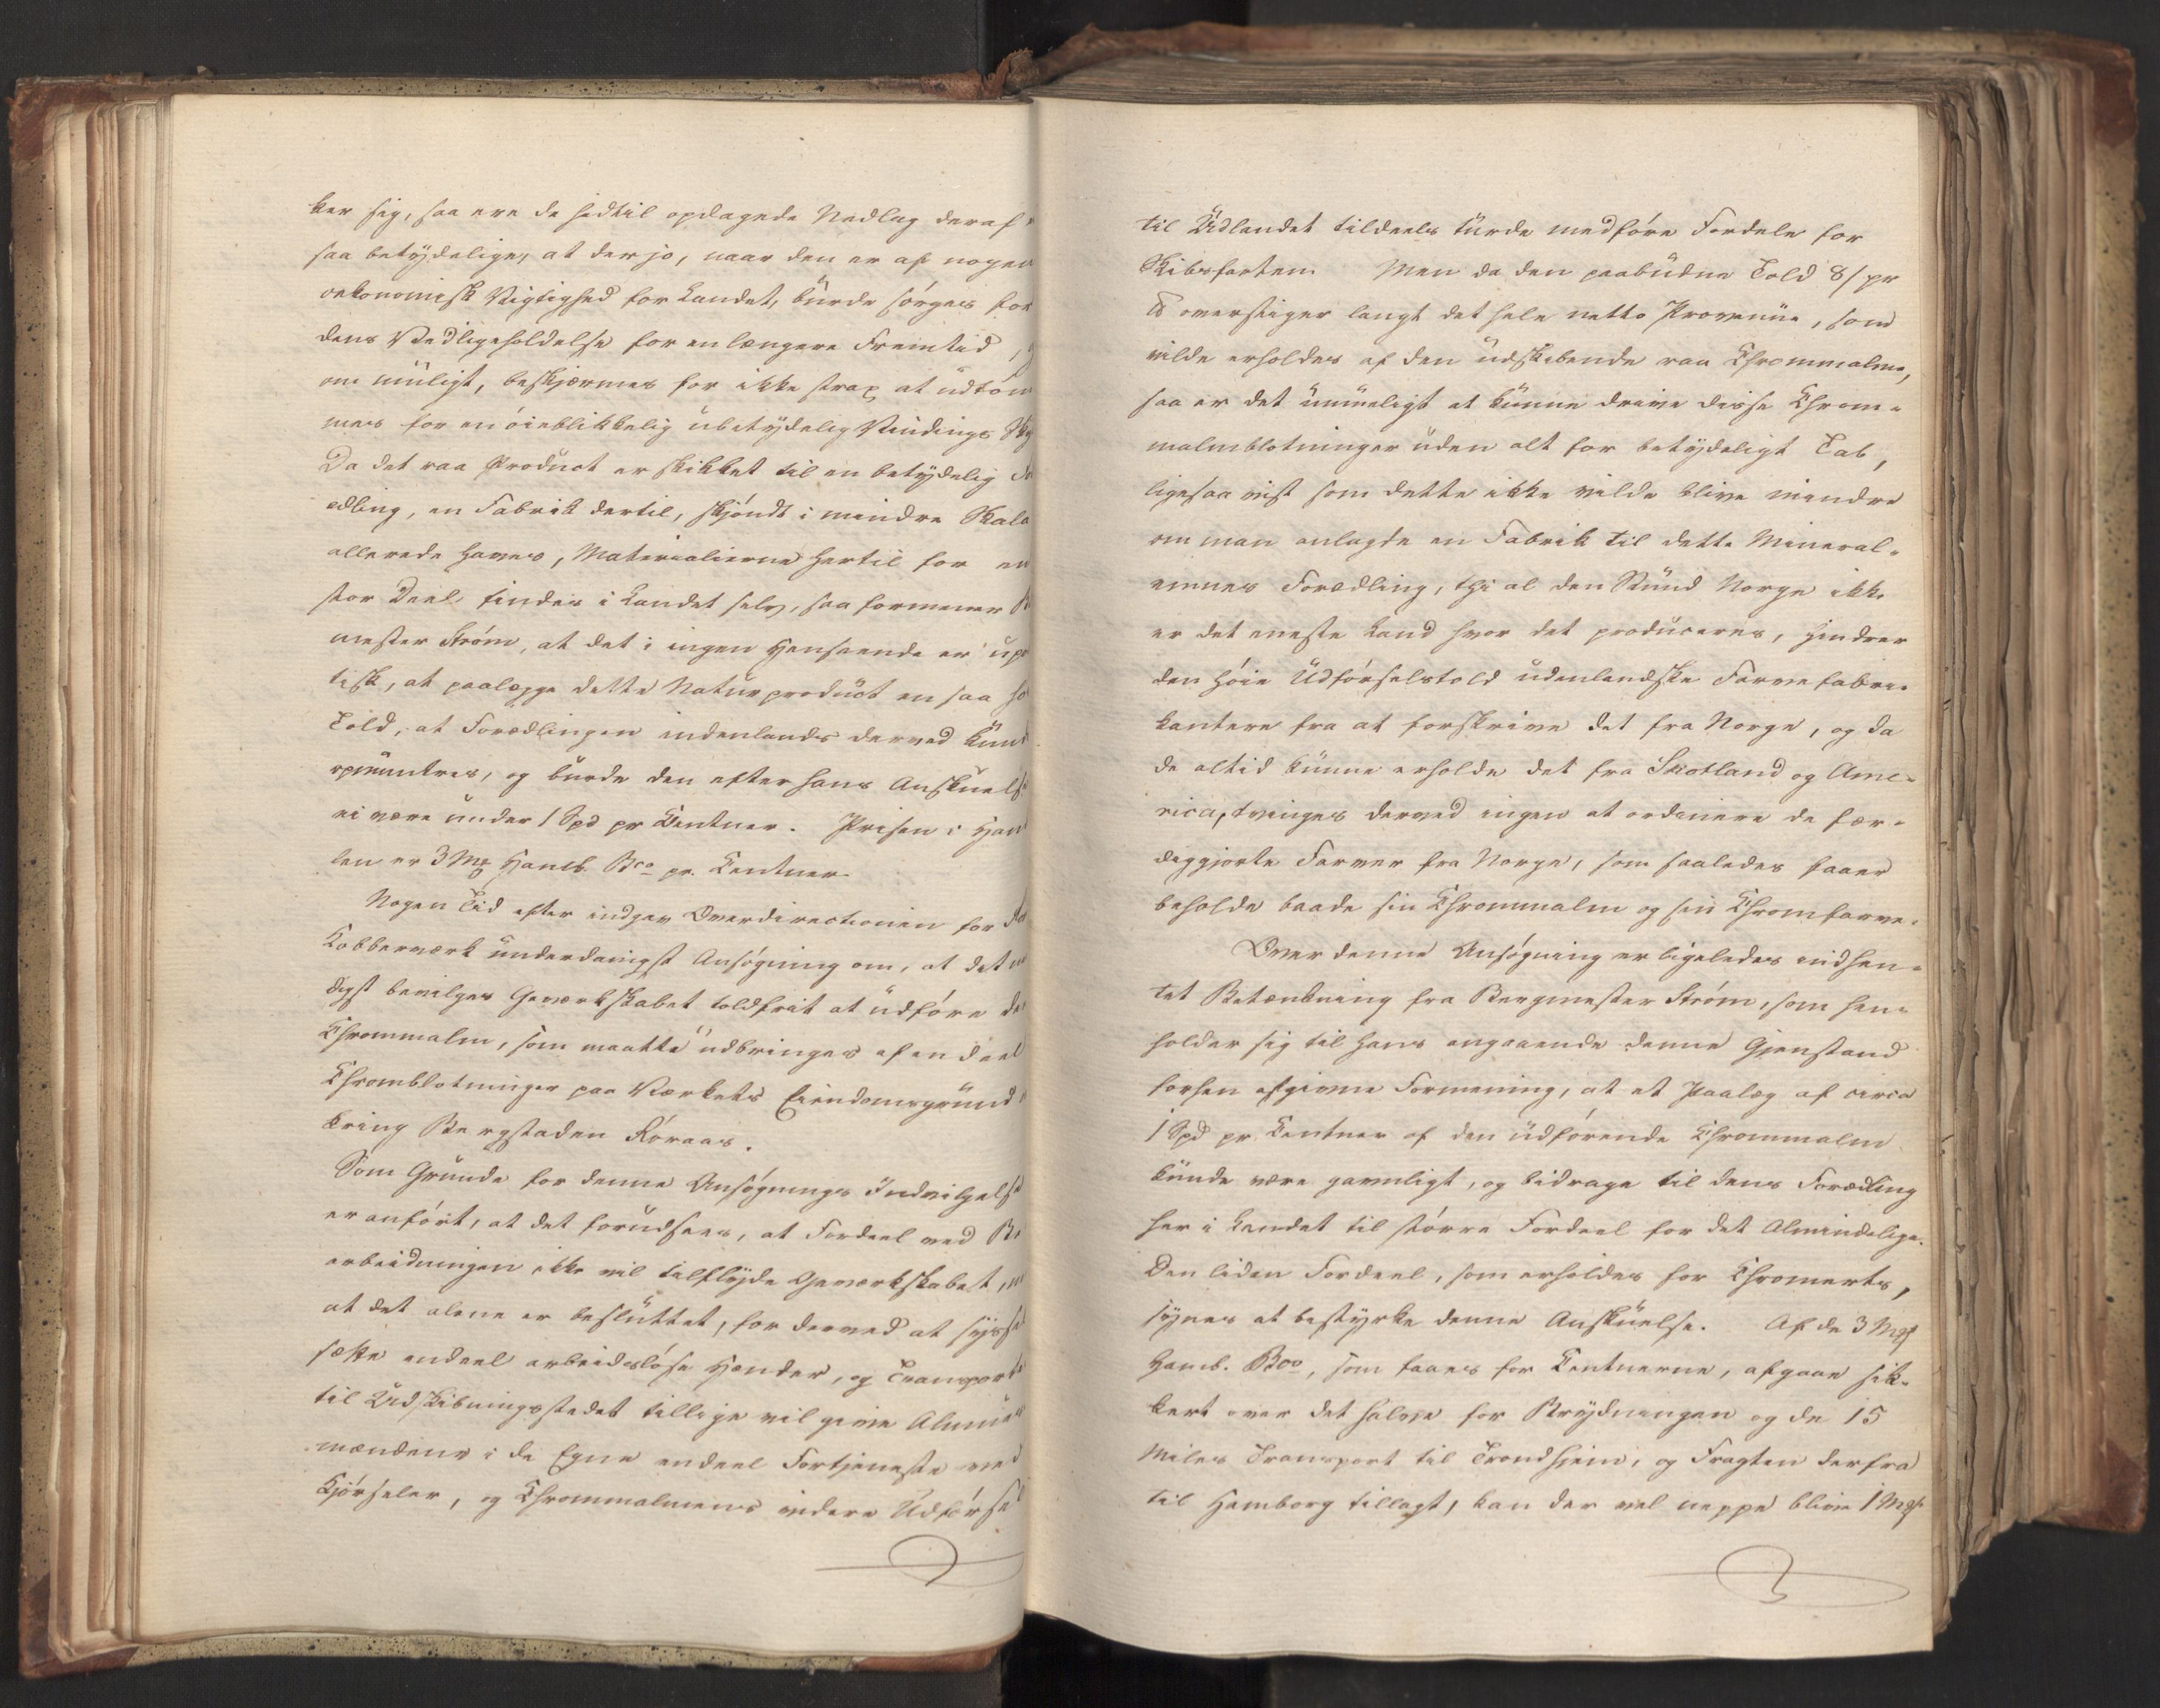 ker sig, saa ere de hidtil opdagede Nedlag deraf
saa betydelige, at der jo, naar den er af nogen
oekonomisk Vigtighed for Landet, burde sørges for
dens Vedligeholdelse for en længere Fremtid,
om muligt, beskjærmes for ikke strax at udtøm
mes for en øieblikkelig ubetydelig Vindings
Da det raa Product er skikket til en betydelig
ædling, en Fabrik dertil, skjøndt i mindre Skala
allerede haves, Materialierne hertil for en
stor Deel findes i Landet selv, saa formener
mester Strøm, at det i ingen Henseende er
tisk, at paalægge dette Naturproduct en saa
Told, at Forædlingen indenlands derved kun
opmuntres, og burde den efter hans Anskuelse
ei være under 1 Spd pr Centner. Prisen i Han
len er 3 Mk Hamb. Bco pr. Centner
Nogen Tid efter indgav Overdirectionen for
Kobberværk underdanigst Ansøgning om, at det
digst bevilges Gewærkskabet toldfrit at udføre
Chrommalm, som maatte udbringes af en deel
Chromblotninger paa Værkets Eiendomsgrund
kring Bergstaden Røraas.
Som Grunde for denne Ansøgnings Indvilgelse
er anført, at det forudsees, at Fordeel ved Be
arbeidningen ikke vil tilflyde Gewærkskabet,
at det alene er besluttet, for derved at syssel
sætte endeel arbeidsløse Hænder, og Transporte
til Udskibningsstedet tillige vil give Almues
mændene i de Egne endeel Fortjeneste ved
Kjørseler, og Chrommalmens videre Udførsel
til Udlandet tildeels turde medføre Fordele for
Skibsfarten. Men da den paabudne Told 8/ pr
℔ overstiger langt det hele netto Provenue, som
vilde erholdes af den udskibende raa Chrommalm,
saa er det umueligt at kunne drive disse Chrom-
malmblotninger uden alt for betydeligt Tab,
ligesaa vist som dette ikke vilde blive mindre
om man anlagde en Fabrik til dette Mineral-
emnes Forædling, thi al den Stund Norge ikke
er det eneste Land hvor det produceres, hindrer
den høie Udførselstold udenlandske Farvefabri-
kantere fra at forskrive det fra Norge, og da
de altid kunne erholde det fra Skotland og Ame-
rica, tvinges derved ingen at ordinere de fær-
diggjorte Farver fra Norge, som saaledes faaer
beholde baade sin Chrommalm og sin Chromfarve.
Over denne Ansøgning er ligeledes indhen-
tet Betænkning fra Bergmester Strøm, som hen-
holder sig til hans angaaende denne Gjenstand
forhen afgivne Formening, at et Paalæg af circa
1 Spd pr. Centner af den udførende Chrommalm
kunde være gavnligt, og bidrage til dens Forædling
her i Landet til større Fordeel for det Almindelige.
Den liden Fordeel, som erholdes for Chromerts,
synes at bestyrke denne Anskuelse. Af de 3 Mk
Hamb. Bco, som faaes for Centnerne, afgaae sik-
kert over det halve for Brydningen og de 15
Miles Transport til Trondhjem, og Fragten derfra
til Hamborg tillagt, kan der vel neppe blive 1 Mk